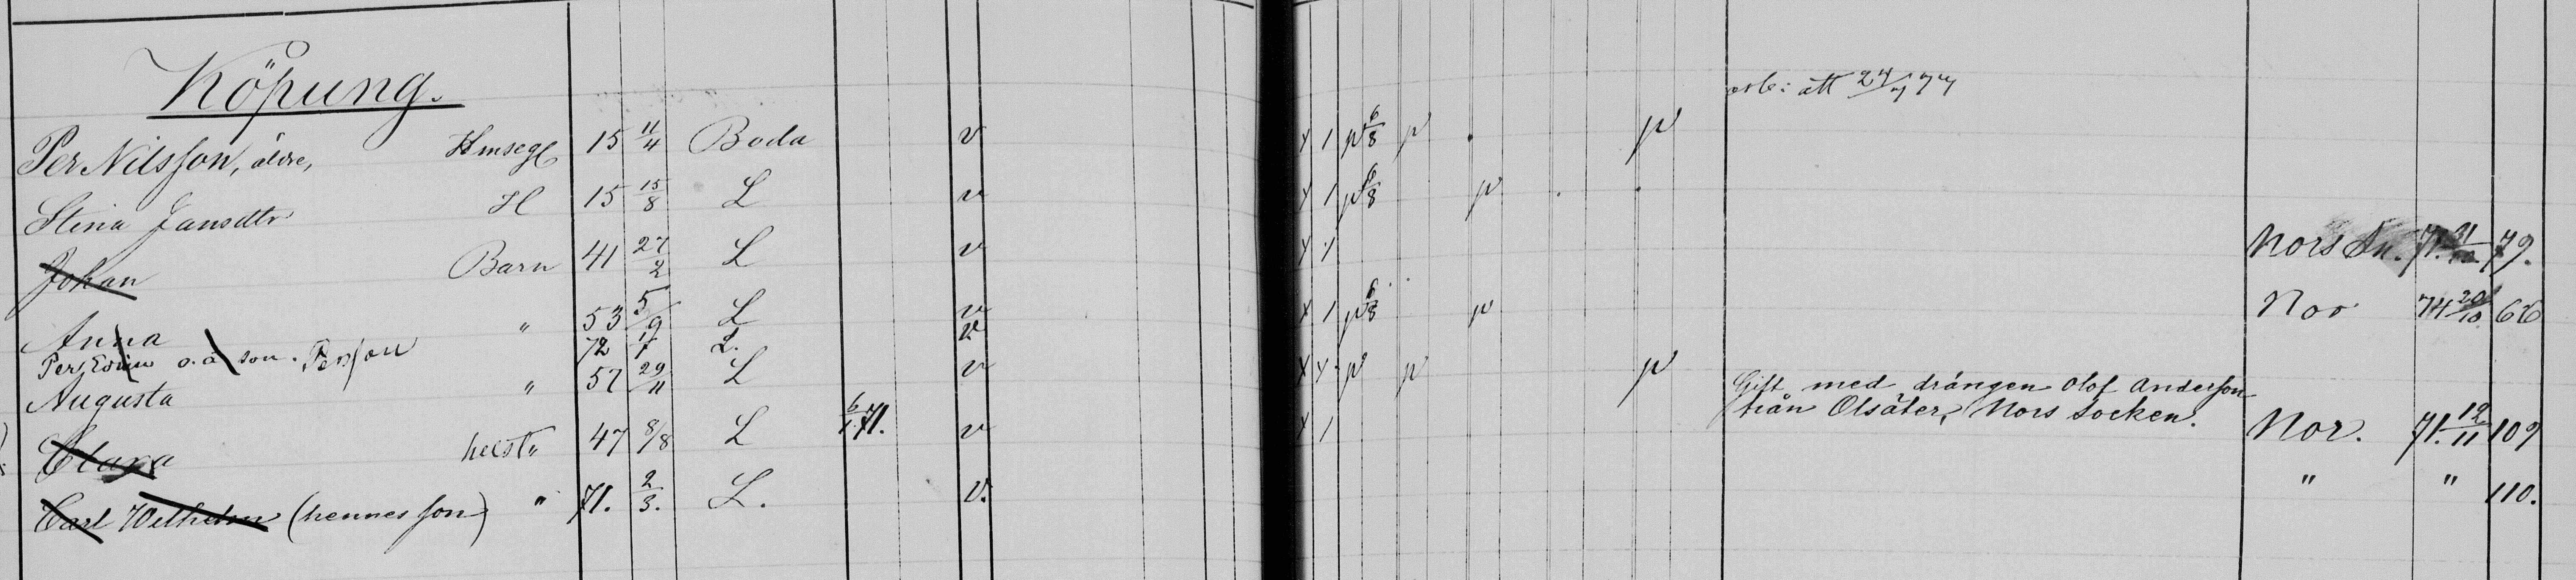 Köpung.
erb: att 24/7 77
Per Nilsson, äldre, Hmseg 15 11/4 Boda v y 1 p 6/8 p p
Stina Jansdtr H 15 15/8 L v y 1 p 6/8 p
Johan Barn 41 27/2 L v y 1 Nors Sn. 71. 79.
Anna " 53 5/9 L v y 1 p 6/8 p Nor 74 20/10 66
Per Edvin o. ä son. Persson 72 L. v
Augusta " 57 29/11 L v y y p p p
Gift med drängen Olof Anderson
från Olsäter, Nors Socken.
Clara " 47 8/8 L 71. v y 1 Nor. 71. 12/11 109
Carl Wilhelm (hennes son) " 71. 2/3. L. v. " " 110.